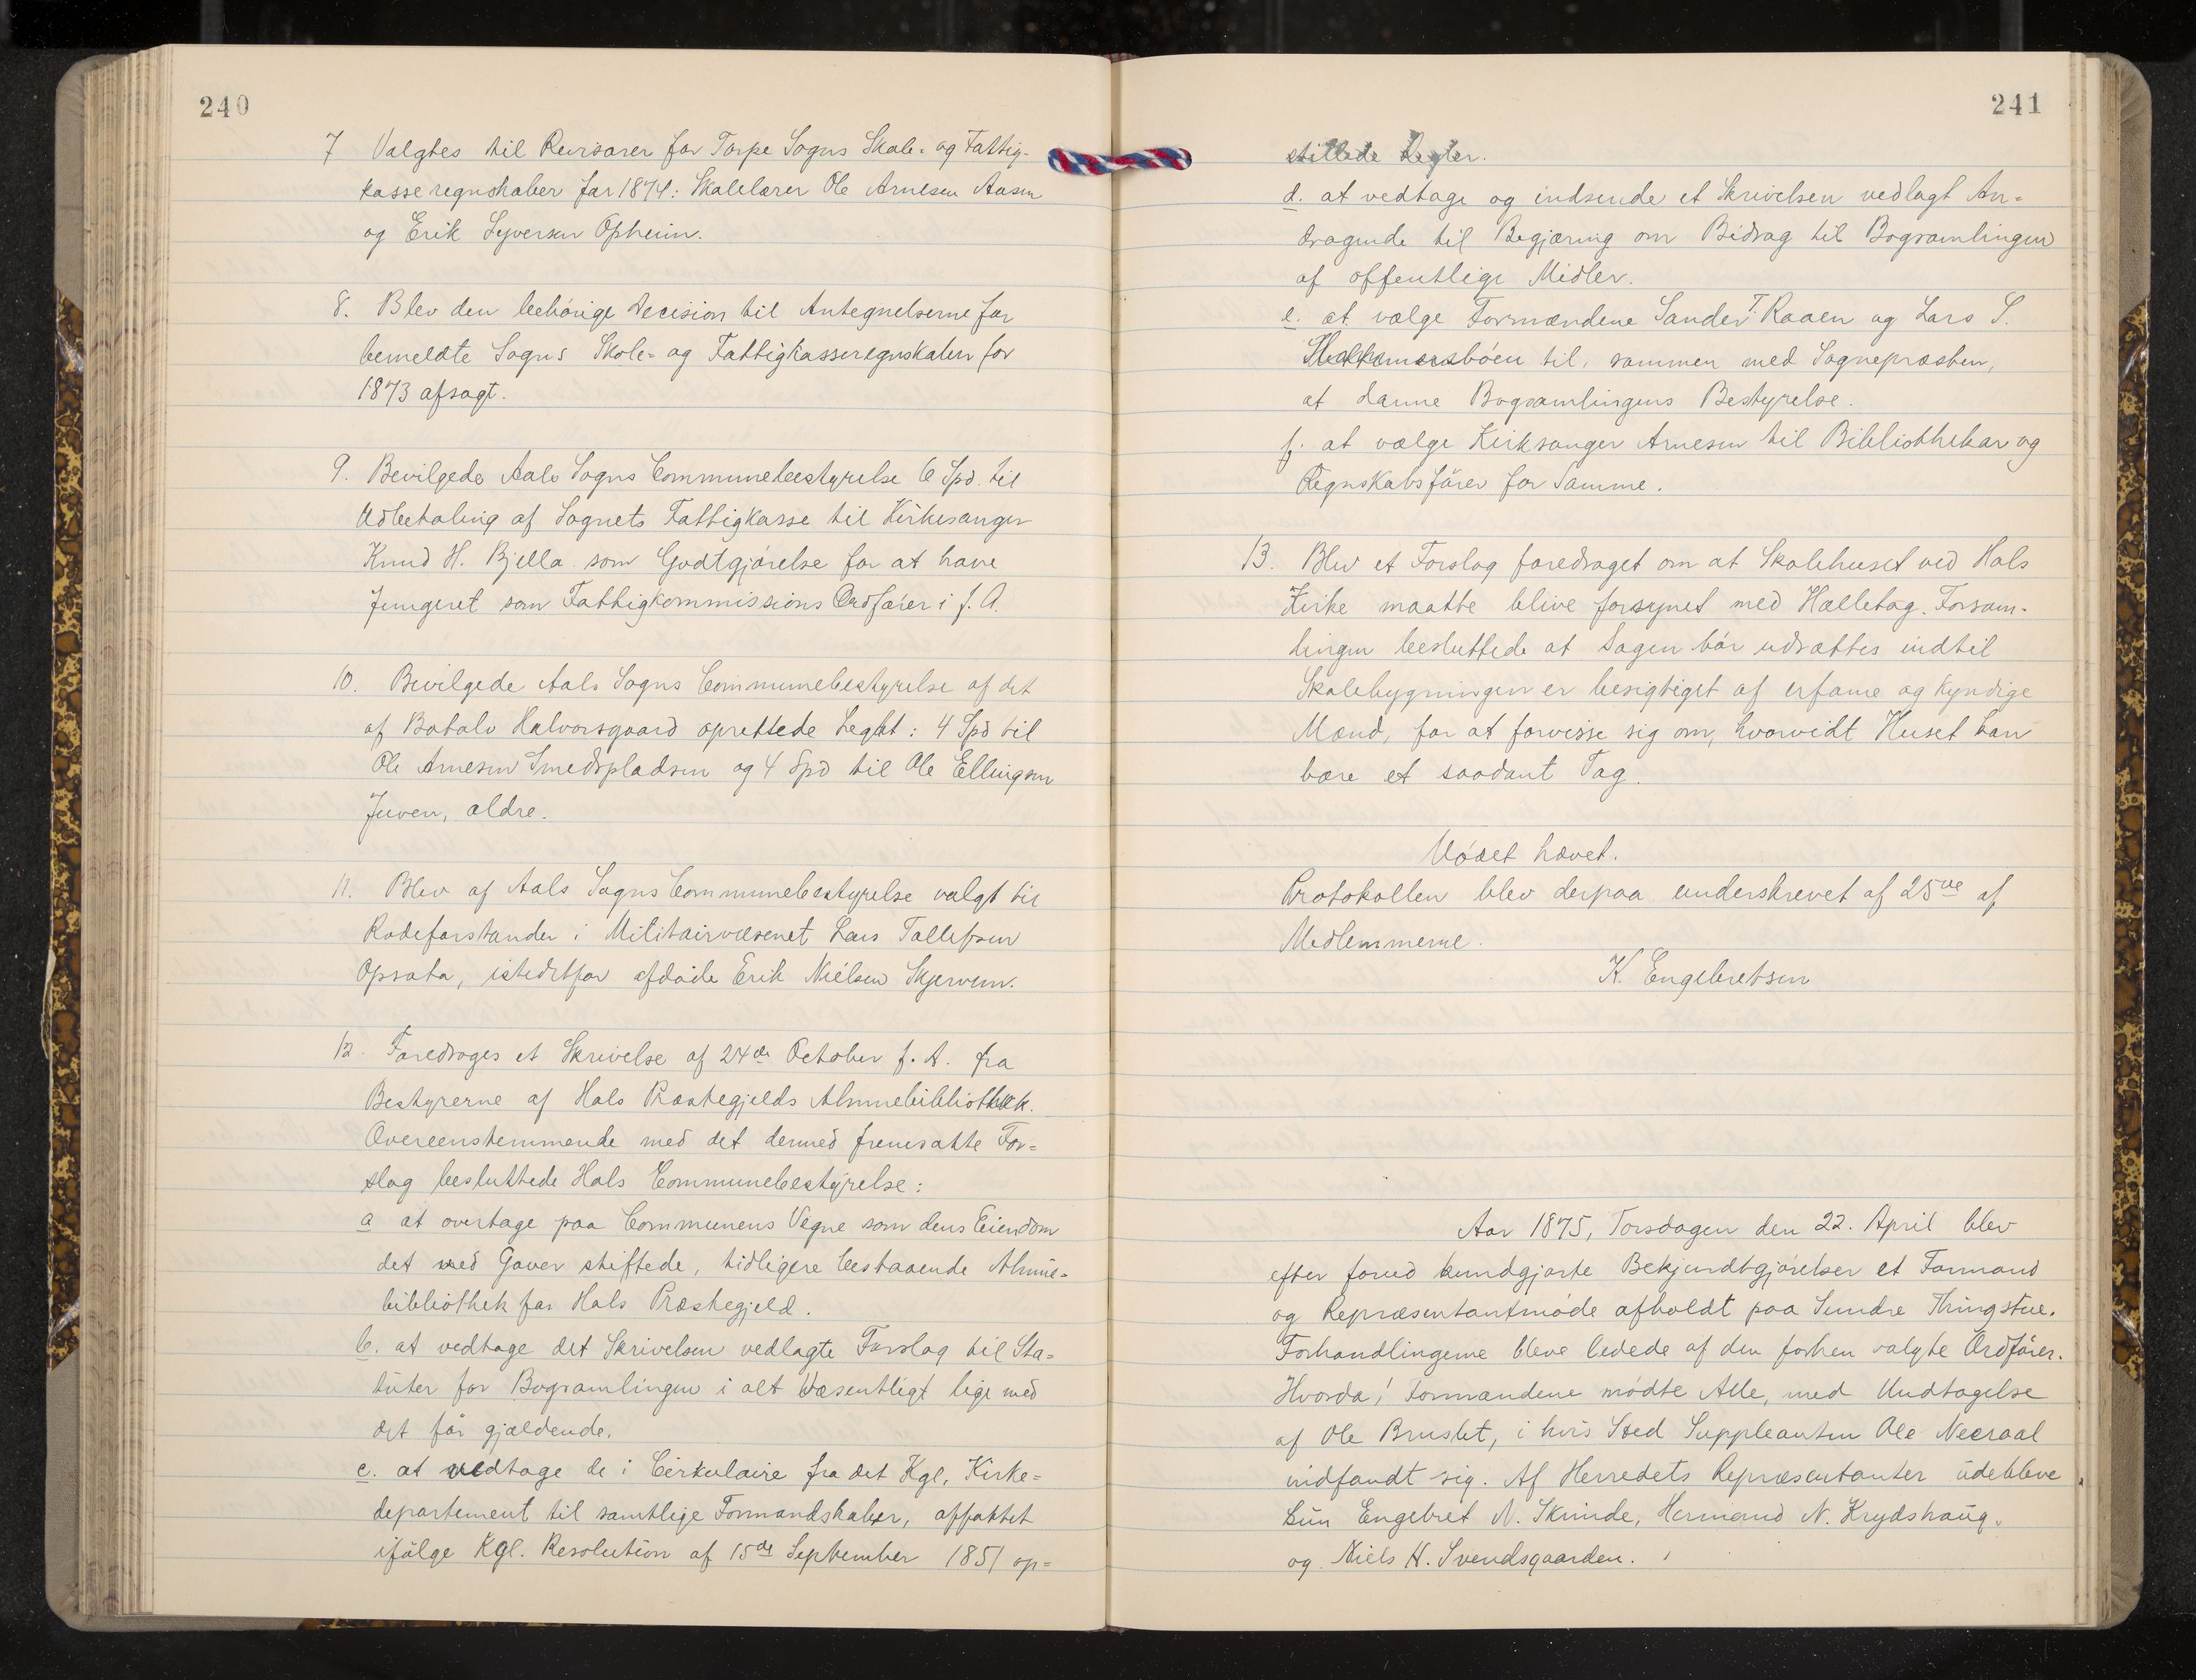 240
7 Valgtes til Revisorer for Torpe Sogns Skole- og Fattig-
kasseregnskaber for 1874: Skolelærer Ole Arnesen Aasen
og Erik Syversen Opheim.
8. Blev den behörige Decision til Antegnelserne for
bemeldte Sogns Skole- og Fattigkasseregnskaber for
1873 afsagt.
9. Bevilgede Aals Sogns Communebestyrelse 6 Spd. til
Udbetaling af Sognets Fattigkasse til Kirkesanger
Knud H. Bjella som Godtgjörelse for at have
fungeret som Fattigkommissions Ordförer i f. A.
10. Bevilgede Aals Sogns Communebestyrelse af det
af Botolv Halvorsgaard oprettede Legat: 4 Spd til
Ole Arnesen Smedspladsen og 4 Spd til Ole Ellingsen
Juven, ældre.
11. Blev af Aals Sogns Communebestyrelse valgt til
Rodeforstander i Militairvæsenet Lars Tollefsen
Opsata, istedetfor afdöde Erik Nielsen Skjervem.
12. Foredroges et Skrivelse af 24de October f. A. fra
Bestyrerne af Hols Præstegjelds Almuebibliothek.
Overeenstemmende med det dermed fremsatte For-
slag besluttede Hols Communebestyrelse:
a at overtage paa Communens Vegne som dens Eiendom
det ved Gaver stiftede, tidligere bestaaende Almue-
bibliothek for Hols Præstegjeld.
b. at vedtage det Skrivelsen vedlagte Forslag til Sta-
tuter for Bogsamlingen i alt Væsentligt lige med
det för gjældende.
c. at vedtage de i Cirkulaire fra det Kgl. Kirke-
departement til samtlige Formandskaber, affattet
ifölge Kgl. Resolution af 15de September 1851 op-
241
stillede Regler.
d. at vedtage og indsende et Skrivelsen vedlagt An-
dragende til Begjæring om Bidrag til Bogsamlingen
af offentlige Midler.
e. at vælge Formændene Sander T. Raaen og Lars S.
til, sammen med Sognepræsten,
at danne Bogsamlingens Bestyrelse.
f. at vælge Kirksanger Arnesen til Bibliothekar og
Regnskabsförer for Samme.
13. Blev et Forslag foredraget om at Skolehuset ved Hols
Kirke maatte blive forsynet med Hælletag. Forsam-
lingen besluttede at Sagen bör udsættes indtil
Skolebygningen er besigtiget af erfarne og kyndige
Mænd, for at forvisse sig om, hvorvidt Huset kan
bære et saadant Tag.
Mödet hævet.
Protokollen blev derpaa underskrevet af 25ve af
Medlemmerne.
K. Engebretsen
Aar 1875, Torsdagen den 22. April blev
efter forud kundgjorte Bekjendtgjörelser et Formand
og Repræsentantmöde afholdt paa Sundre Thingstue.
Forhandlingerne bleve ledede af den forhen valgte Ordförer.
Hvorda! Formændene mödte Alle, med Undtagelse
af Ole Bruslet, i hvis Sted Suppleanten Ole Neeraal
indfandt sig. Af Herredets Repræsentanter udebleve
kun Engebret N. Skrinde, Hermand N. Krydshaug
og Niels H. Svendsgaarden.